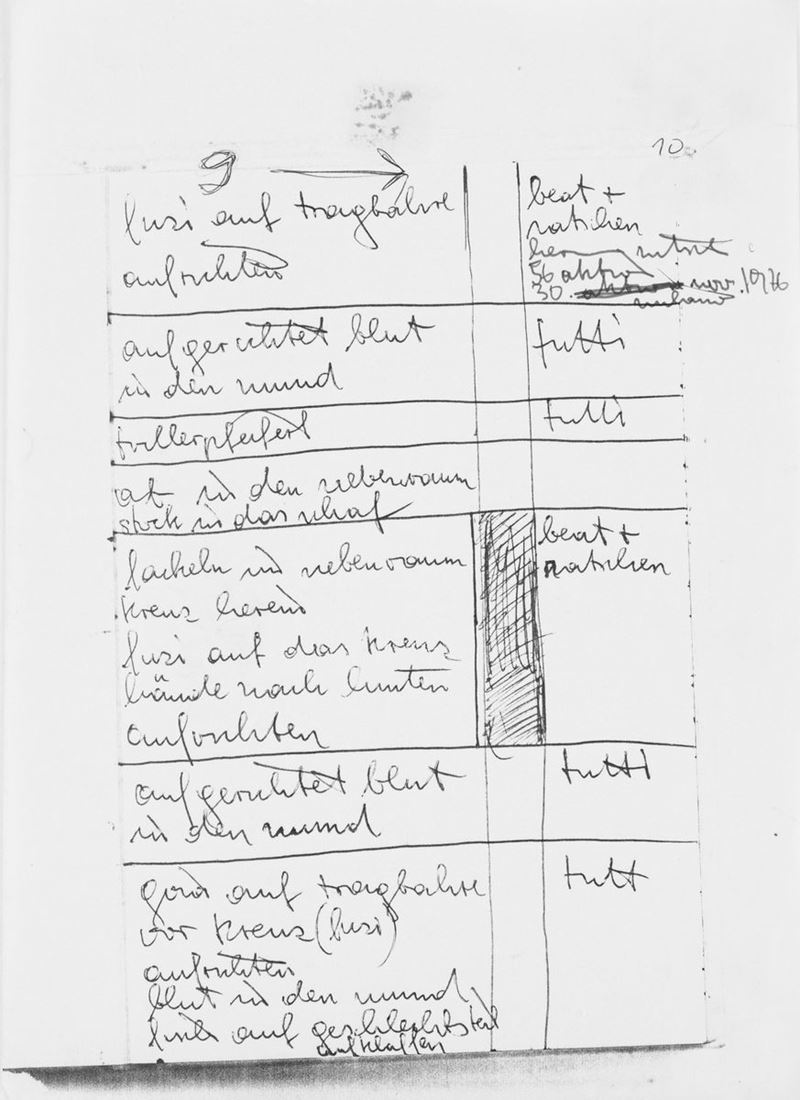 9 → 10.
fuzi auf tragbahre
aufrichten
beat +
ratschen
hermann nitsch
56 aktion
30. nov. 1976
milano
aufgerichtet blut
in den mund
tutti
trillerpfeiferl
tutti
ab in den nebenraum
stock in das schaf
fackeln in nebenraum
kreuz herein
fuzi auf das kreuz
hände nach hinten
aufrichten
beat +
ratschen
aufgerichtet blut
in den mund
tutti
auf tragbahre
vor kreuz (fuzi)
aufrichten
blut in den mund
fisch auf geschlechtsteil
tutti